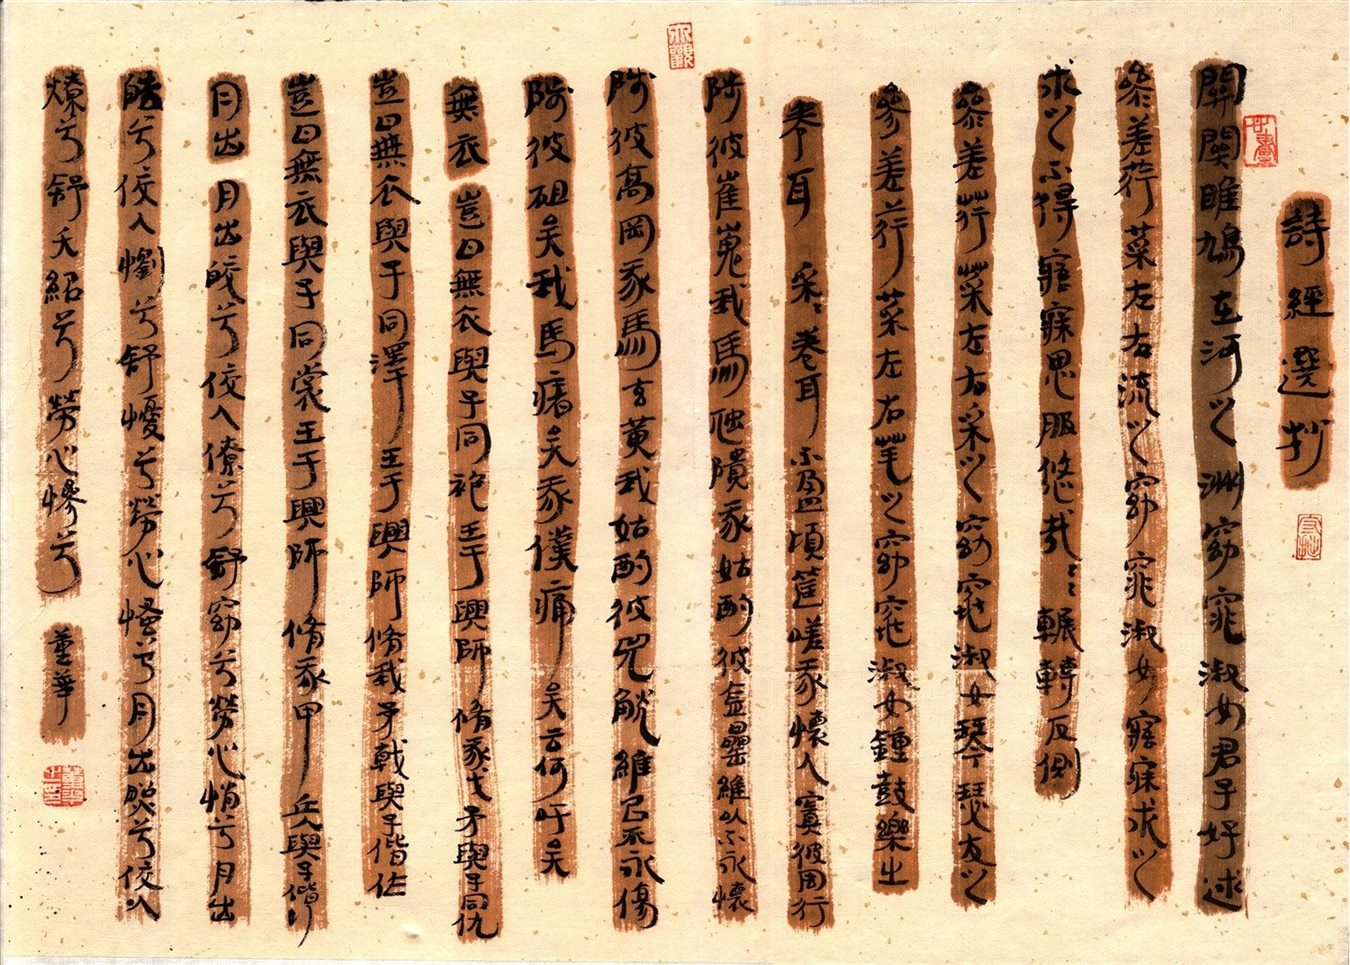 詩經選抄
關關雎鳩在河之洲窈窕淑女君子好逑
參差荇菜左右流之窈窕淑女寤寐求之
求之不得寤寐思服悠哉〻輾轉反側
參差荇菜左右采之窈窕淑女琴瑟友之
參差荇菜左右芼之窈窕淑女鍾鼓樂之
卷耳 采〻卷耳不盈頃筐嗟我懷人寘彼周行
陟彼崔嵬我馬虺隤我姑酌彼金罍維以不永懷
陟彼高岡我馬玄黃我姑酌彼兕觥維以不永傷
陟彼砠矣我馬瘏矣我僕痡矣云何吁矣
無衣 豈曰無衣與子同袍王于興師脩我戈矛與子同仇
豈曰無衣與子同澤王于興師脩我矛戟與子偕作
豈曰無衣與子同裳王于興師脩我甲兵與子偕行
月出 月出皎兮佼人僚兮舒窈兮勞心悄兮月出
皓兮佼人懰兮舒懮兮勞心慅兮月出照兮佼人
燎兮舒夭紹兮勞心慘兮
董華